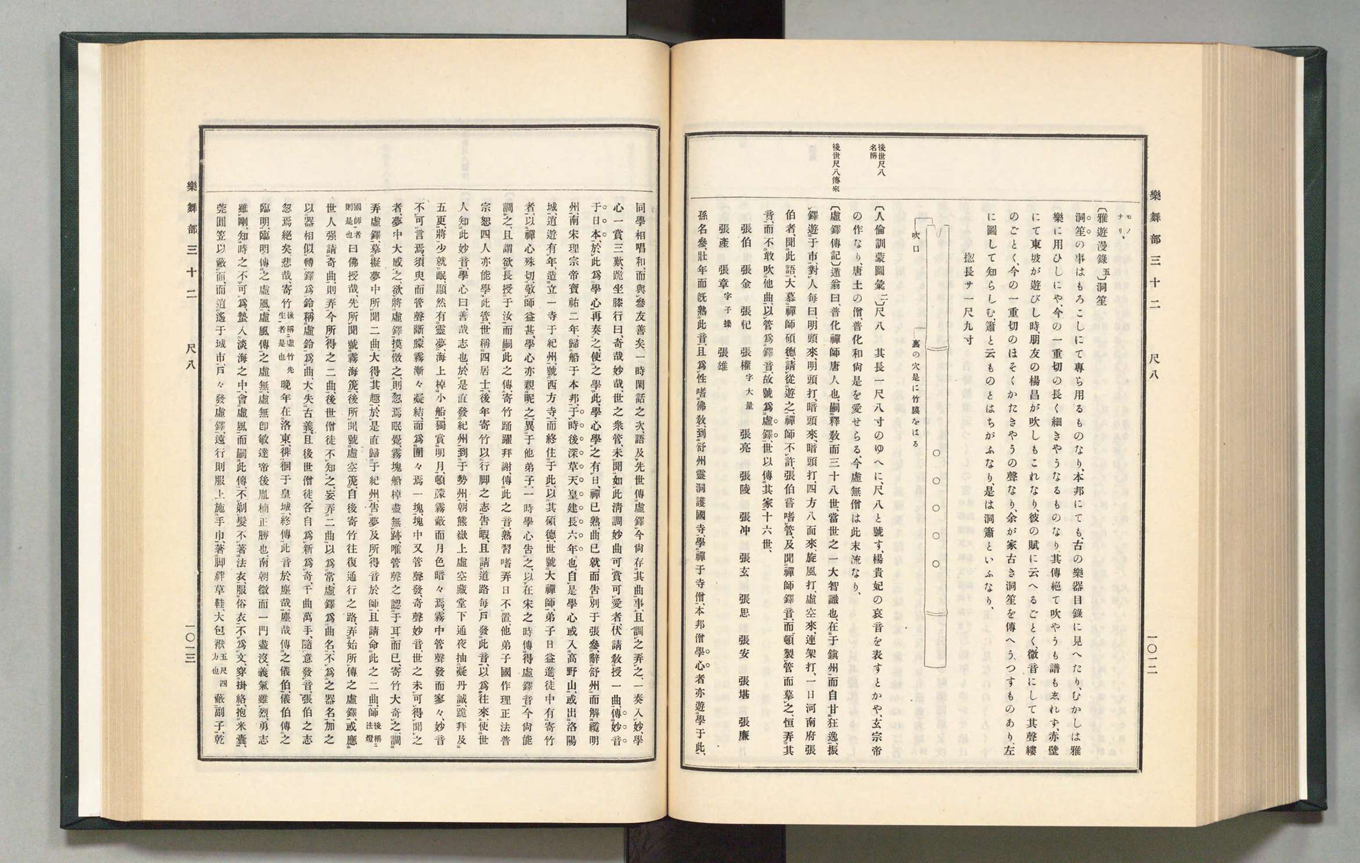 樂舞部三十二 尺八
一〇一二
モノナリ、
〔雅遊漫錄 五〕洞笙
洞笙の事はもろこしにて專ら用るものなり、本邦にても、古の樂器目錄に見へたり、むかしは雅
樂に用ひしにや、今の一重切の長く細きやうなるものなり、其傳絕て吹やうも譜も忘れず、赤壁
にて東坡が遊びし時、朋友の楊昌が吹しもこれなり、彼の賦に云へるごとく、微音にして其聲縷
のごとく、今の一重切のほそくかたきやうの聲なり、余が家古き洞笙を傳へうつすものあり、左
に圖して知らしむ、簫と云ものとはちがふなり、是は洞簫といふなり、
惣長サ一尺九寸
裏の穴是に竹膜をはる
吹口
後世尺八名稱
〔人倫訓蒙圖彙 二〕尺八 其長一尺八寸のゆへに、尺八と號す、楊貴妃の哀音を表すとかや、玄宗帝
の作なり、唐土の僧、普化和尙是を愛せらる、今虛無僧は此末流なり、
後世尺八傳來
〔虛鐸傳記〕遁翁曰、普化禪師唐人也、嗣釋敎而三十八世、當世之一大智識也、在于鎭州而自甘狂逸、振
鐸遊于市、對人每曰、明頭來、明頭打、暗頭來、暗頭打、四方八面來、旋風打、虛空來連架打、一日河南府張
伯者、聞此語、大慕禪師碩德、請從遊之、禪師不許、張伯嘗嗜管、及聞禪師鐸音、而頓製管而摹之、恒弄其
音、而不敢吹他曲、以管爲鐸音、故號爲虛鐸、世以傳其家十六世、
張伯 張金 張杞 張權字大量 張亮 張陵 張冲 張玄 張思 張安 張堪 張廉
張產 張章字子操 張雄
孫名參、壯年而既熟此音、且爲性嗜佛敎、到舒州靈洞護國寺、學禪于寺僧、本邦僧學心者亦遊學于此、
同學相唱和而與參友善矣、一時閑話之次、語及先世傳虛鐸、今尙存其曲事、且調之弄之、一奏入妙、學
心一賞三歎、跪坐膝行曰、奇哉妙哉、世之衆管、未聞如此淸調妙曲可賞可愛者、伏請敎授一曲、傳妙音
于日本、於此爲學心再奏之、使之學此、學心學之有日、禪已熟曲已就、而告別于張參、辭舒州而解纜明
州、南宋理宗帝寶祐二年、歸船于本邦、于時後深草天皇建長六年也、自是學心或入高野山、或出洛陽
城、遊有年、造立一寺于紀州、號西方寺、而終住于此、以其碩德世號大禪師、弟子日益進、徒中有寄竹
者、以禪心殊切、敬師益甚、學心亦親昵之、異于他弟子、一時學心告之、以在宋之時傳得虛鐸音、今尙能
調之、且謂欲長授于汝而嗣此之傳、寄竹踊躍拜謝傳此之音、熟習嗜弄日不置、他弟子國作理正法普
宗恕四人亦能學此管、世稱四居士、後年寄竹以行脚之志告暇、且請道路每戶發此音、以爲往來、使世
人知此妙音、學心曰、善哉志也、於是直發紀州到于勢州朝熊嶽上虛空藏堂下、通夜抽凝丹誠跪拜、及
五更將少就眠、顯然有靈夢、海上棹小船、獨賞明月、頓濛霧蔽而月色暗々焉、霧中管聲發而寥々、妙音
不可言焉、須臾而管聲斷朦霧漸々凝結而爲團々焉、一塊塊中又管聲發、奇聲妙音、世之未可得聞之
者、夢中大感之、欲將虛鐸摸倣之、則忽焉眠覺、霧塊船棹盡無跡、唯管聲之認于耳而已、寄竹大奇之、調
弄虛鐸、摹擬夢中所聞二曲、大得其趣、於是直歸于紀州、告夢及所得音於師、且請命此之二曲、師後稱法燈
國師者則是也曰、佛授哉、先所聞號霧海篪、後所聞號虛空篪、自後寄竹往復通行之路、弄始所傳之虛鐸、或應
世人强請奇曲、則弄今所得之二曲、後世僧徒不知之、妄弄二曲以爲常、虛鐸爲曲名、不爲之器名、加之
以器相似、轉鐸爲鈴、稱虛鈴、爲曲大失古義、且後世僧徒、各自爲新、爲奇、千曲萬手、隨意發音、張伯之志
忽焉絕矣、悲哉、寄竹後稱虛竹先生者是也晚年在洛東、徘徊于皇城、終傳此音於塵哉、塵哉傳之儀伯、儀伯傳之
臨明、臨明傳之虛風、虛風傳之虛無、虛無卽敏達帝後胤楠正勝也、南朝微而一門盡沒、義氣雖烈、勇志
雖剛、知時之不可爲、蟄入淡海之中、會虛風而嗣此傳、不剃髮不著法衣、服俗衣、不爲文、穿掛絡、抱米囊、
莞囲笠以蔽面、而逍遙于城市、戶々發虛鐸、遠行則服上施手巾、著脚絆草鞋、大包袱五尺四方也蔽副子乾
樂舞部三十二 尺八
一〇一三